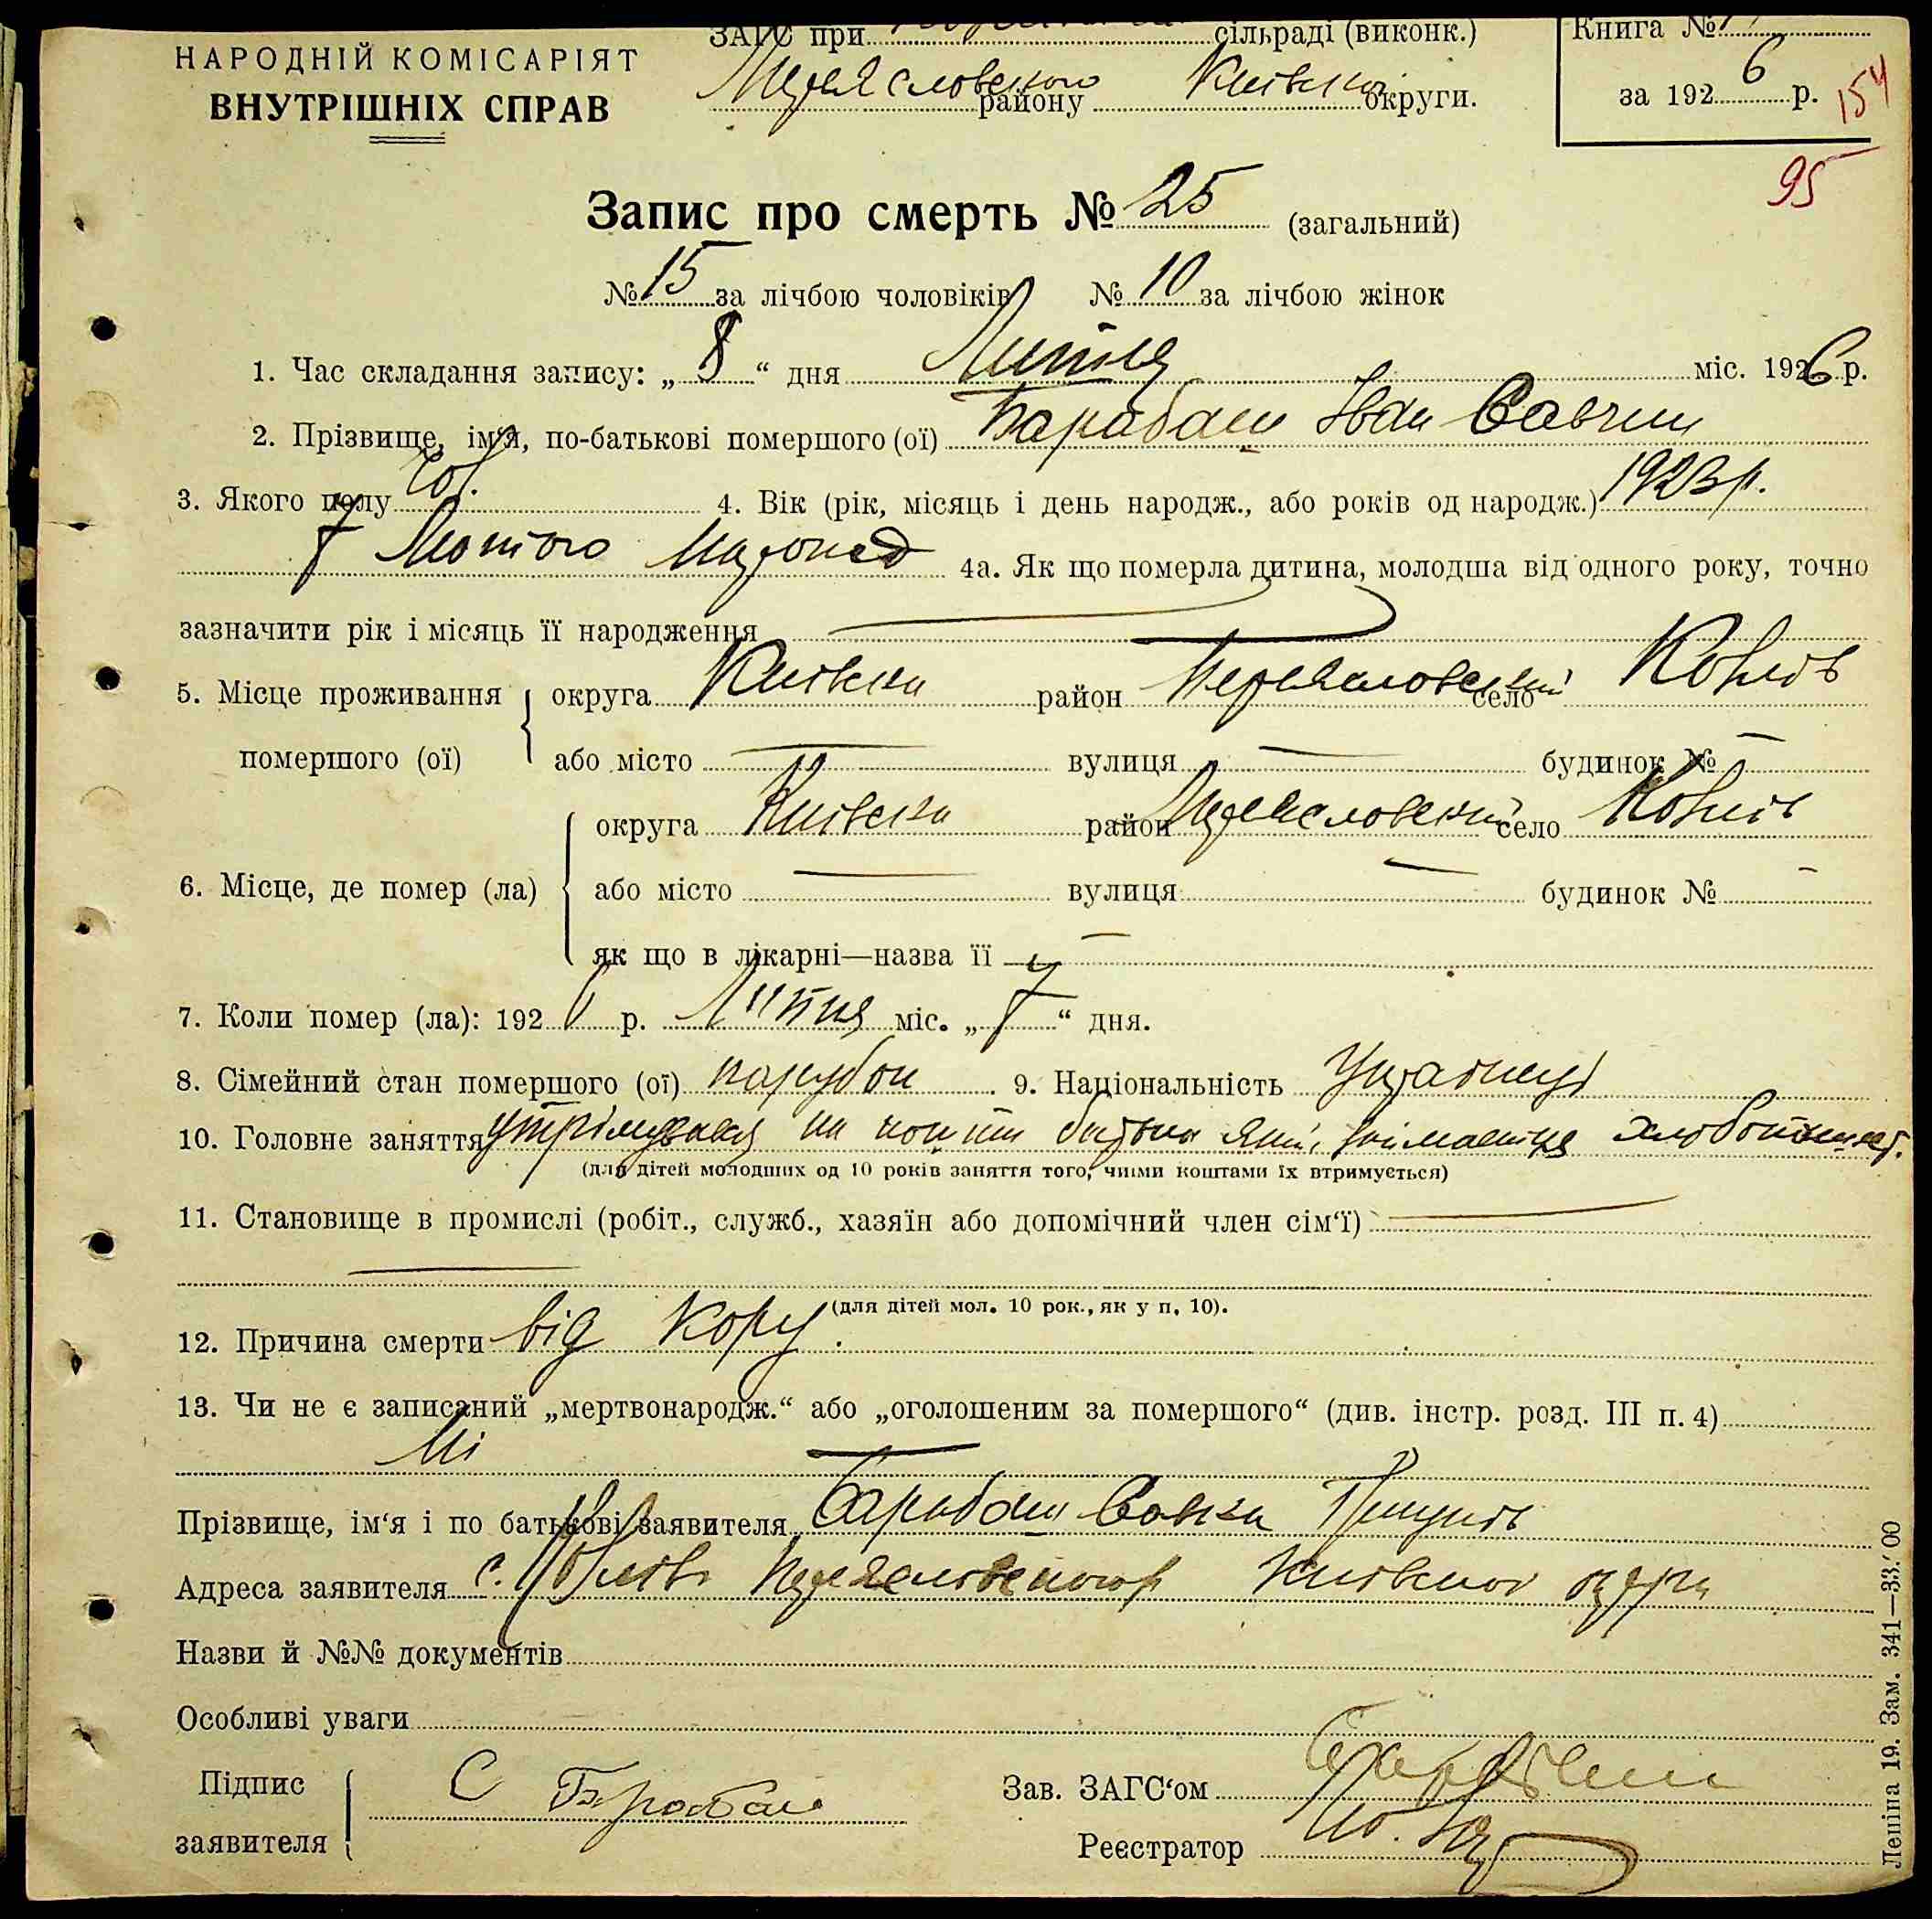 НАРОДНІЙ КОМІСАРІЯТ
ВНУТРІШНІХ СПРАВ
ЗАГС при сільраді (виконк.)
району Київської округи.
Книга №
за 1926 р.
154
95
Запис про смерть № 25 (загальний)
№ 15 за лічбою чоловіків № 10 за лічбою жінок
1. Час складання запису: „8“ дня Липня міс. 1926 р.
2. Прізвище, ім‘я, по-батькові помершого (ої) Барабаш Іван Савчин
3. Якого полу 4. Вік (рік, місяць і день народж., або років од народж.) 1923 р.
7 Лютого 4а. Як що померла дитина, молодша від одного року, точно
зазначити рік і місяць її народження
5. Місце проживання помершого (ої) округа Київска район Переясловський село Ковалів
або місто вулиця будинок №
6. Місце, де помер (ла) округа Київска район Переясловський село Ковалів
або місто вулиця будинок №
як що в лікарні—назва її
7. Коли помер (ла): 1926 р. Липня міс. „7“ дня.
8. Сімейний стан помершого (ої) парубок 9. Національність Українец
10. Головне заняття утрімувався на кошти батька який займається хлоборобством
(для дітей молодших од 10 років заняття того, чиїми коштами їх втримується)
11. Становище в промислі (робіт., служб., хазяїн або допомічний член сім‘ї)
(для дітей мол. 10 рок., як у п. 10).
12. Причина смерти від кору.
13. Чи не є записаний „мертвонародж.“ або „оголошеним за помершого“ (див. інстр. розд. III п. 4)
Ні
Прізвище, ім‘я і по батькові заявителя Барабаш Савка
Адреса заявителя с. Ковалів Переясловського р Київської округи
Назви й №№ документів
Особливі уваги
Підпис заявителя С Барабаш
Зав. ЗАГС‘ом
Реєстратор
Леніна 19. Зам. 341—33.‘00